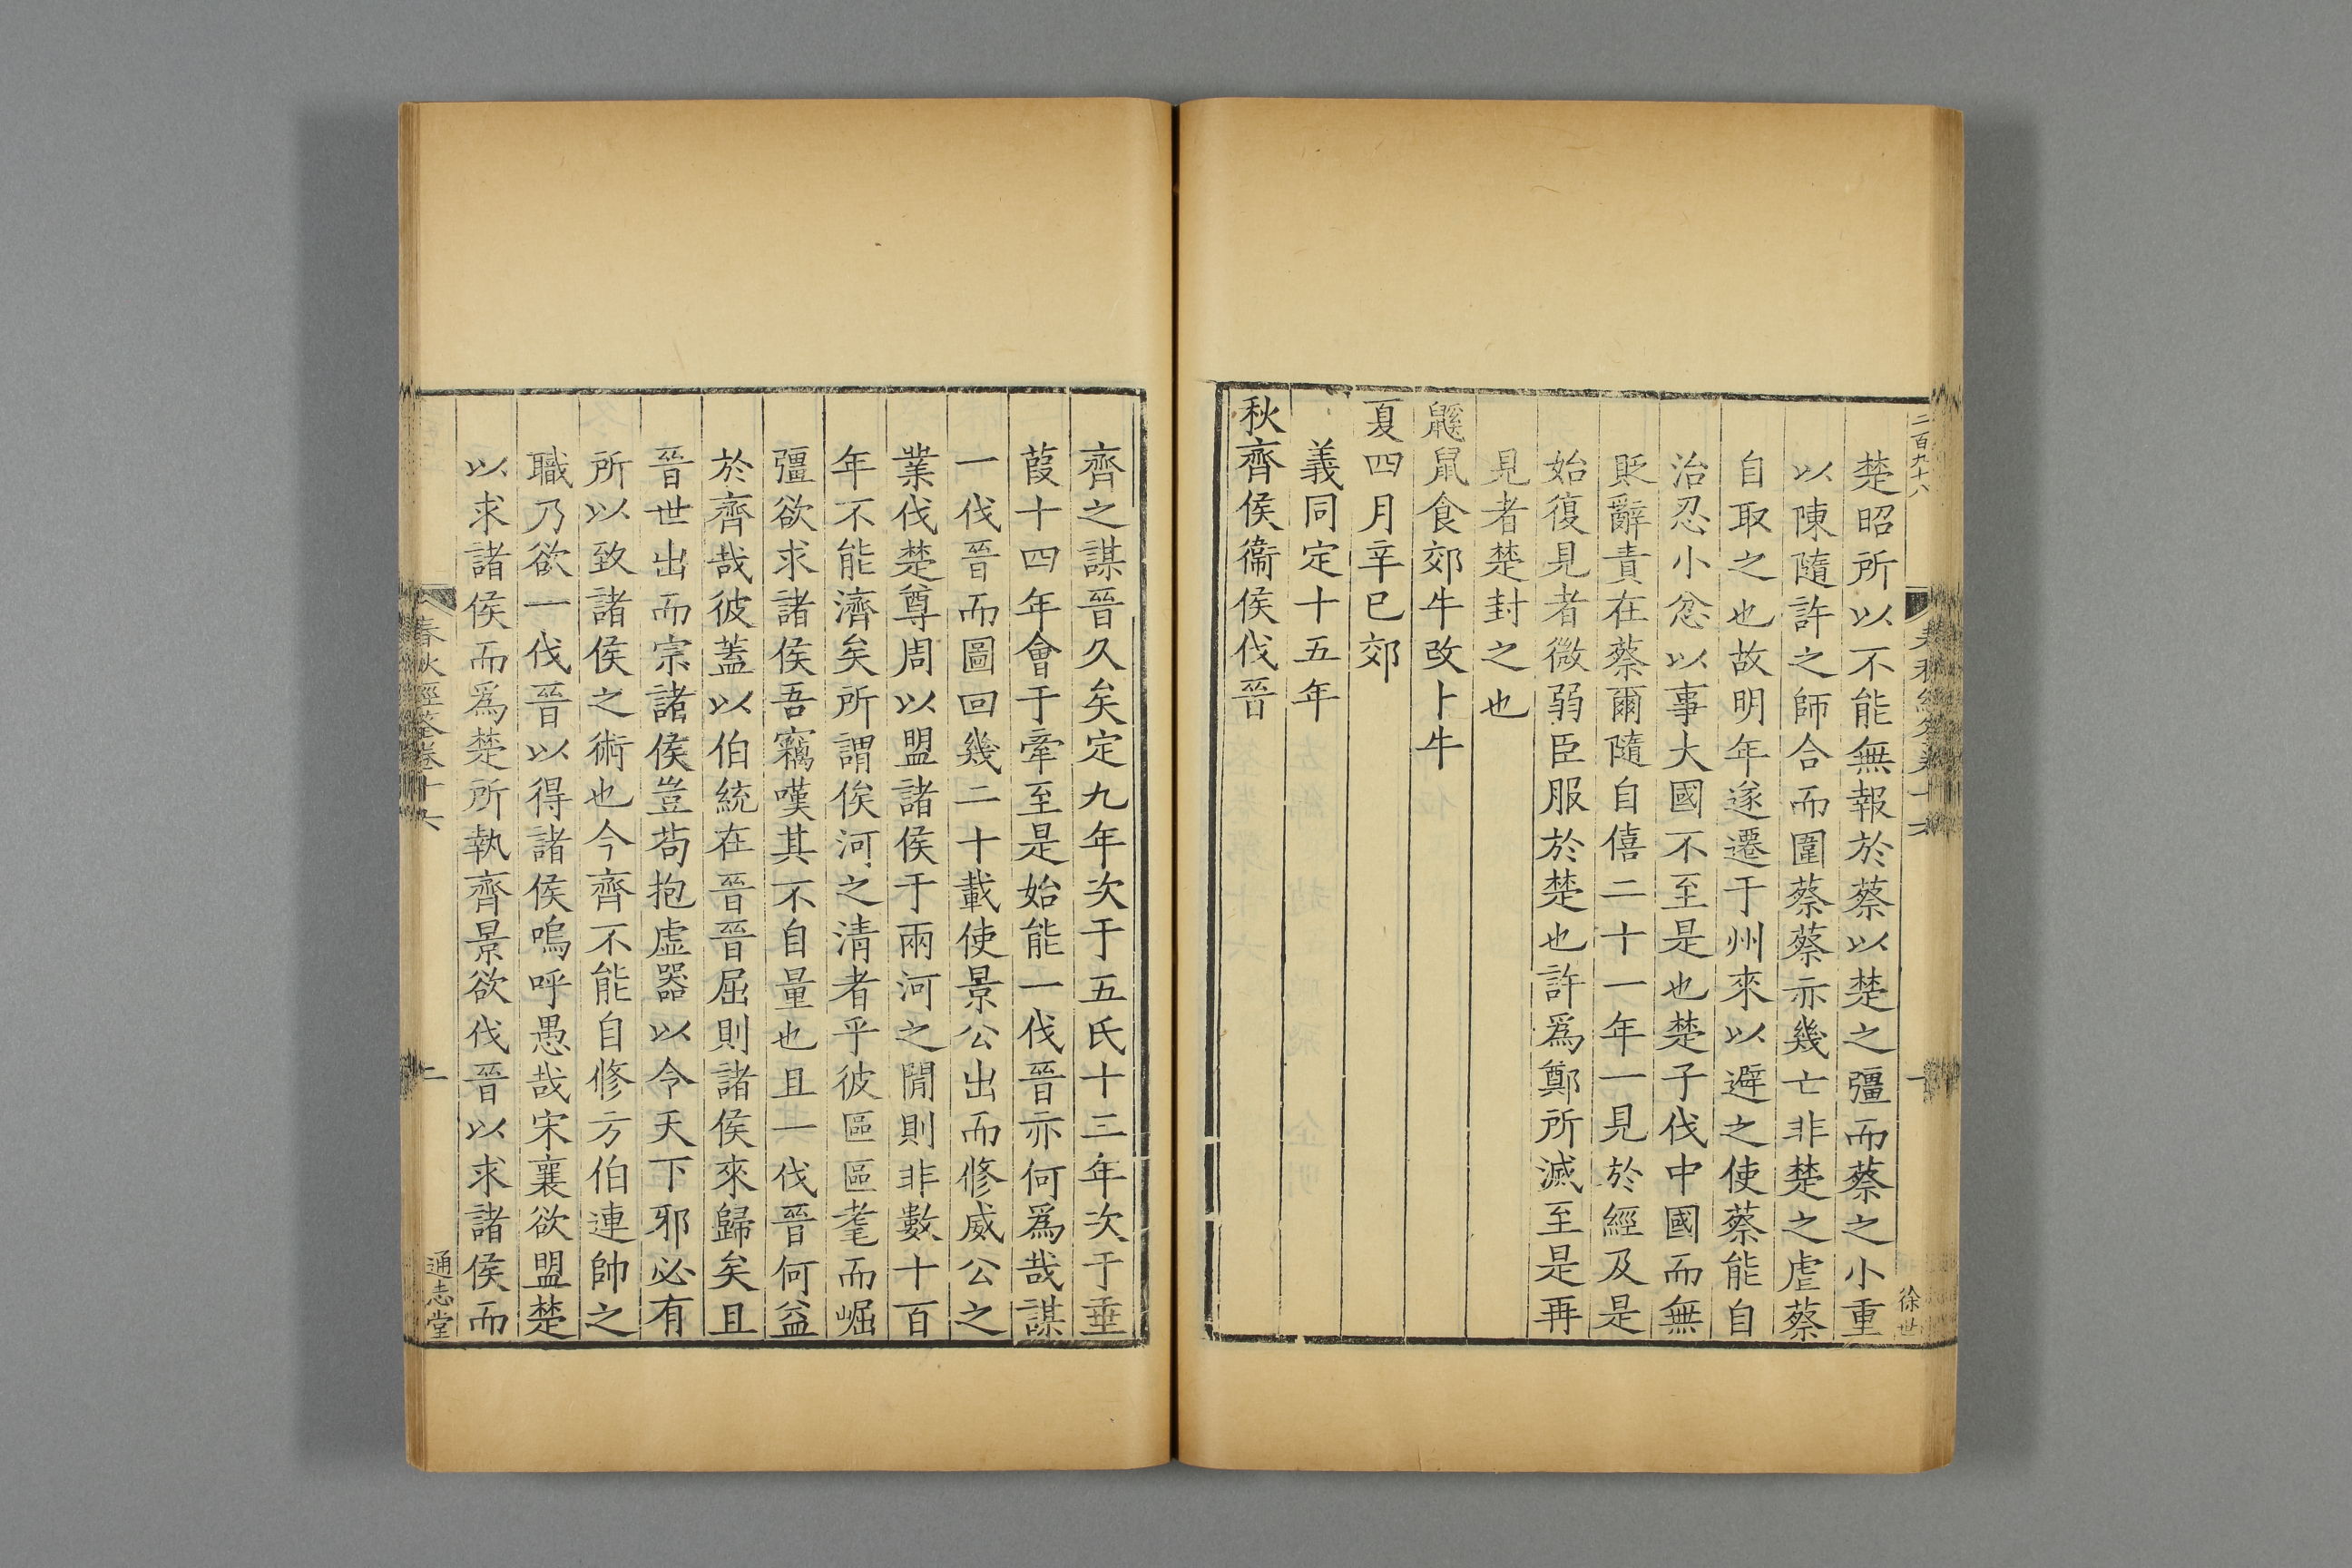 二百九十八
楚昭所以不能無報於蔡以楚之彊而蔡之小重
以陳隨許之師合而圍蔡蔡亦幾亡非楚之虐蔡
自取之也故明年遂遷于州來以避之使蔡能自
治忍小忿以事大國不至是也楚子伐中國而無
貶辭責在蔡爾隨自僖二十一年一見於經及是
始復見者微弱臣服於楚也許爲鄭所滅至是再
見者楚封之也
鼷鼠食郊牛改卜牛
夏四月辛巳郊
義同定十五年
秋齊侯衞侯伐晉
徐世
齊之謀晉久矣定九年次于五氏十三年次于垂
葭十四年會于牽至是始能一伐晉亦何爲哉謀
一伐晉而圖回幾二十載使景公出而修威公之
業伐楚尊周以盟諸侯于兩河之閒則非數十百
年不能濟矣所謂俟河之清者乎彼區區耄而崛
彊欲求諸侯吾竊嘆其不自量也且一伐晉何益
於齊哉彼蓋以伯統在晉晉屈則諸侯來歸矣且
晉世出而宗諸侯豈苟抱虛器以令天下邪必有
所以致諸侯之術也今齊不能自修方伯連帥之
職乃欲一伐晉以得諸侯嗚呼愚哉宋襄欲盟楚
以求諸侯而爲楚所執齊景欲伐晉以求諸侯而
春秋經筌卷十六
通志堂